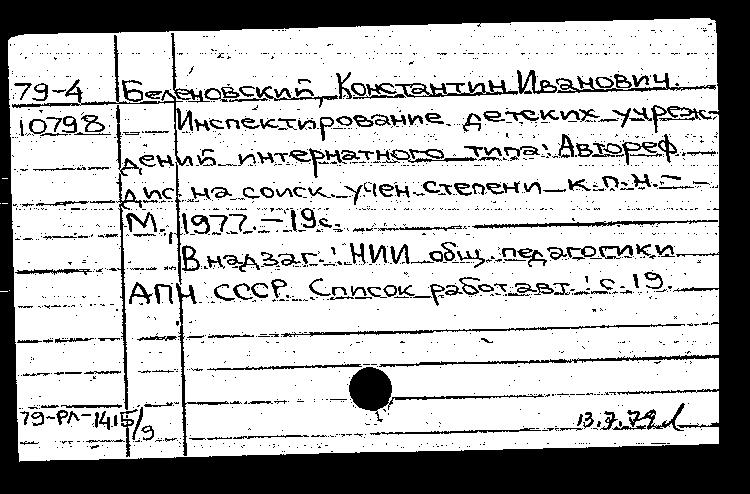 79-4 Беленовский, Константин Иванович.
10798 Инспектирование детских учреж-
дений интернатного типа: Автореф.
дис. на соиск. учен. степени к.п.н. –
М., 1977. – 19с.
В надзаг.: НИИ общ. педагогики
АПН СССР. Список работ авт.: с. 19.
79-РЛ-1415/9 13.7.79